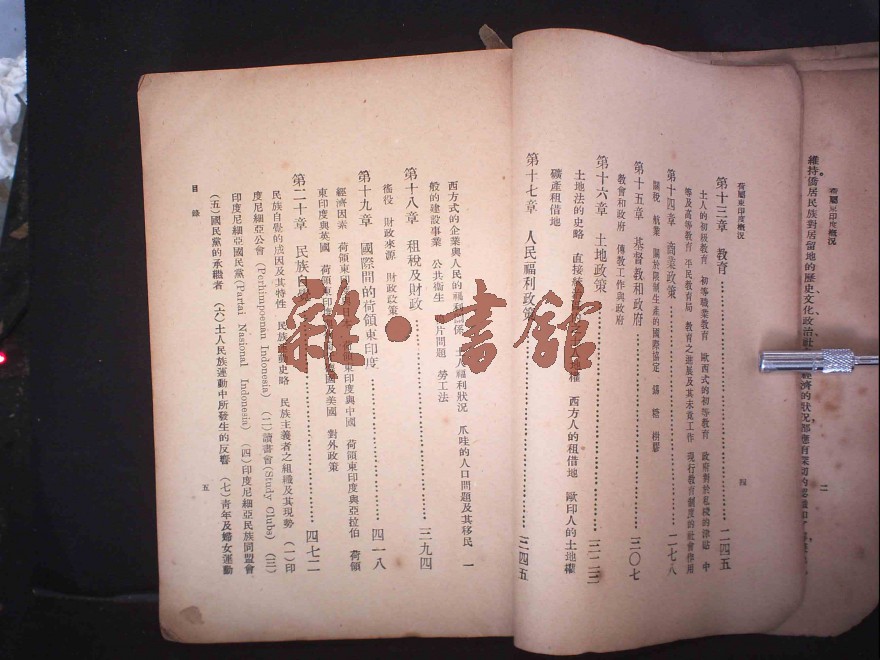 維持僑居民族對居留地的歷史文化政治社
經濟的狀況那應有深切的
荷屬東印度概況
二
荷屬東印度概況
第十三章 教育 二四五
土人的初級教育 初等職業教育 歐西式的初等教育 政府對於私校的津貼 中
等及高等教育 平民教育局 教育之進展及其未竟工作 現行教育制度的社會作用
第十四章 商業政策 二七八
關稅 航業 關於限制生產的國際協定 錫 糖 樹膠
第十五章 基督教和政府 三〇七
教會和政府 傳教工作與政府
第十六章 土地政策
土地法的史略 直接統 權 西方人的租借地 歐印人的土地權
礦產租借地
第十七章 人民福利政策 三四五
四
西方式的企業與人民的福利關係 土人福利狀況 爪哇的人口問題及其移民 一
般的建設事業 公共衞生 片問題 勞工法
第十八章 租稅及財政 三九四
徭役 財政來源 財政政策
第十九章 國際間的荷領東印度 四一八
經濟因素 荷領東印度 日本 荷領東印度與中國 荷領東印度與亞拉伯 荷領
東印度與英國 荷領東印度 國及美國 對外政策
第二十章 民族自覺 四七二
民族自覺的成因及其特性 民族運動史略 民族主義者之組織及其現勢 (一)印
度尼細亞公會 (Perhimpoenan Indonesia) (二)讀書會(Study Clubs) (三)
印度尼細亞國民黨(Partai Nasional Indonesia) (四)印度尼細亞民族同盟會
(五)國民黨的承繼者 (六)土人民族運動中所發生的反響 (七)青年及婦女運動
目錄
五
雜·書館